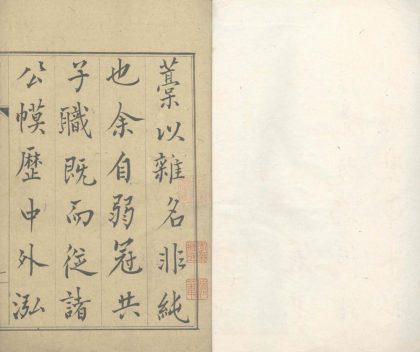 藁以雜名非純
也余自弱冠共
子職既而從諸
公幙歷中外泓